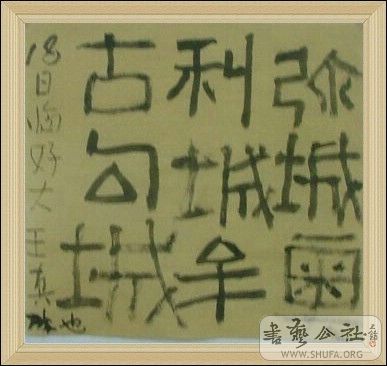 弥城
利城牟
古勾城
18日临好大王
也
書藝公社
WWW.SHUFA.ORG